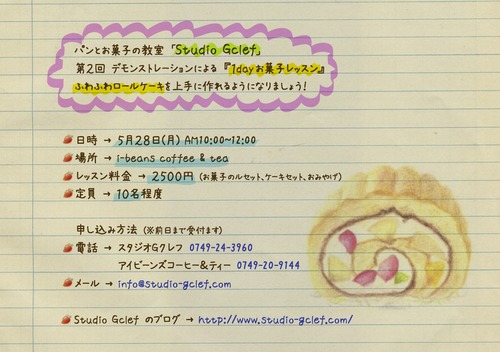 パンとお菓子の教室 「Studio Gclef」
第2回 デモンストレーションによる 『1dayお菓子レッスン』
ふわふわロールケーキを上手に作れるようになりましょう!
日時 → 5月28日(月) AM10:00~12:00
場所 → i-beans coffee & tea
レッスン料金 → 2500円 (お菓子のルセット、ケーキセット、おみやげ)
定員 → 10名程度
申し込み方法 (※前日まで受付ます)
電話 → スタジオGクレフ 0749-24-3960
アイビーンズコーヒー&ティー 0749-20-9144
メール → info@studio-gclef.com
Studio Gclef のブログ → http://www.studio-gclef.com/